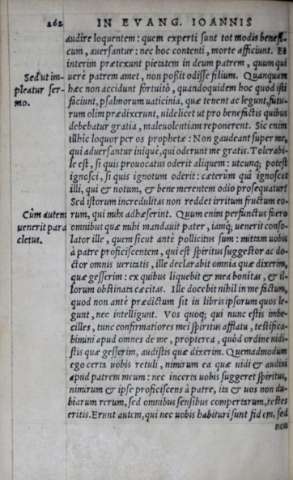 262 IN EVANG. IOANNIS
audire loquentem: quem experti sunt tot modis benefi-
cum, auersantur: nec hoc contenti, morte afficiunt. Et
interim prætexunt pietatem in deum patrem, quum qui
Sed ut im- uere patrem amet, non poßit odisse filium. Quanquam
pleatur ser- hæc non accidunt fortuito, quandoquidem hoc quod isti
mo. faciunt, psalmorum uaticinia, quæ tenent ac legunt, futu-
rum olim prædixerunt, uidelicet ut pro beneficiis quibus
debebatur gratia, maleuolentiam reponerent. Sic enim
illhic loquor per os prophetæ: Non gaudeant super me,
qui aduersantur iniquè, qui oderunt me gratis. Tolerabi-
le est, si quis prouocatus oderit aliquem: utcunq; potest
ignosci, si quis ignotum oderit: cæterùm quis ignoscat
illi, qui & notum, & bene merentem odio prosequatur?
Sed istorum incredulitas non reddet irritum fructum eo-
Cùm autem rum, qui mihi adhæserint. Quum enim perfunctus fuero
uenerit para omnibus quæ mihi mandauit pater, iamq; uenerit conso-
cletus. lator ille, quem sicut antè pollicitus sum: mittam uobis
à patre proficiscentem, qui est spiritus suggestor ac do-
ctor omnis ueritatis, ille declarabit omnia quæ dixerim,
quæ gesserim: ex quibus liquebit & mea bonitas, & il-
lorum obstinata cæcitas. Ille docebit nihil in me factum,
quod non antè prædictum sit in libris ipsorum quos le-
gunt, nec intelligunt. Vos quoq; qui nunc estis imbe-
cilles, tunc confirmatiores mei spiritus afflatu, testifica-
bimini apud omnes de me, propterea, quòd ordine uidi-
stis quæ gesserim, audistis quæ dixerim. Quemadmodum
ego certa uobis retuli, nimirum ea quæ uidi & audiui
apud patrem meum: nec incerta uobis suggeret spiritus,
nimirum & ipse proficiscens à patre, ita & uos non du-
biarum rerum, sed omnibus sensibus compertarum, testes
eritis. Erunt autem, qui nec uobis habituri sunt fidem, sed
non